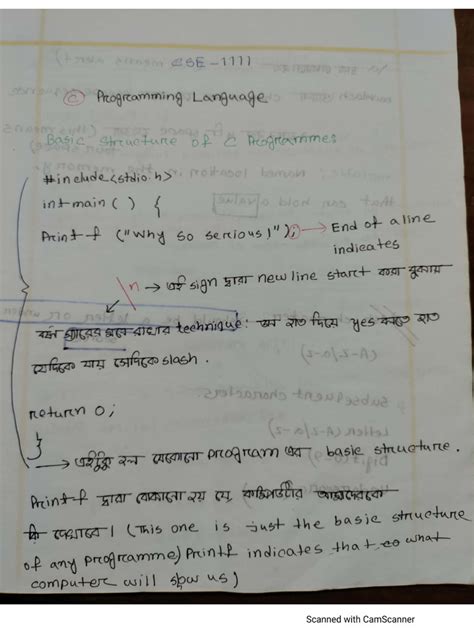 CSE-1111
C Programming Language
Basic structure of C Programmes
#include<stdio.h>
int main() {
Printf ("Why so serious!"); → End of a line
indicates
\n → এই sign দ্বারা new line start করা বুঝায়
মনে রাখার technique: ডান হাত দিয়ে yes করতে হাত
যেদিকে যায় সেদিকে slash.
return 0;
}
→ এইটুকু হল যেকোনো program এর basic structure.
Printf দ্বারা বোঝানো হয় যে, কম্পিউটার আমাদেরকে
কি দেখাবে। (This one is just the basic structure
of any programme) Printf indicates that so what
computer will show us)
Scanned with CamScanner